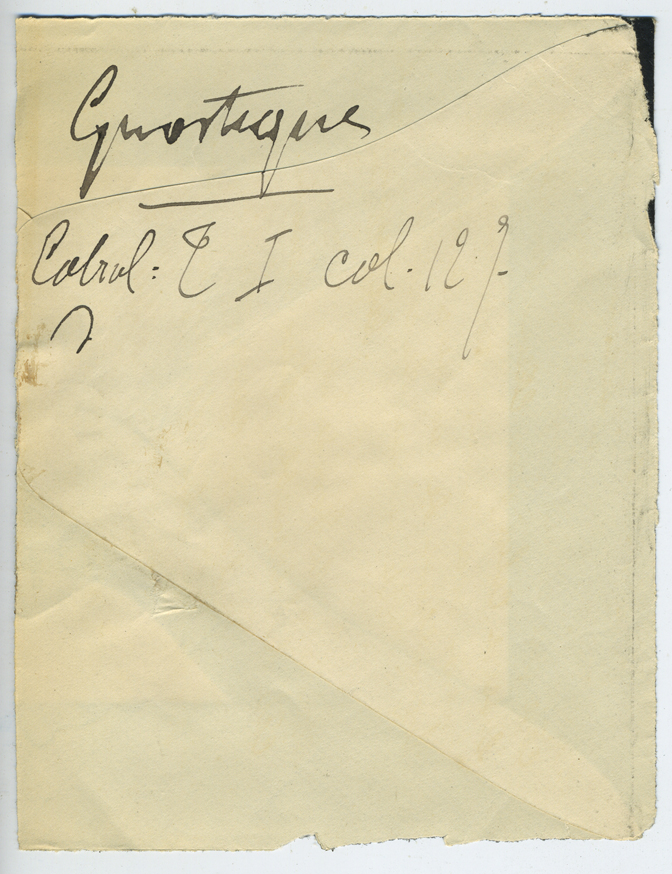 Gnostique
Cabrol: T I col. 127